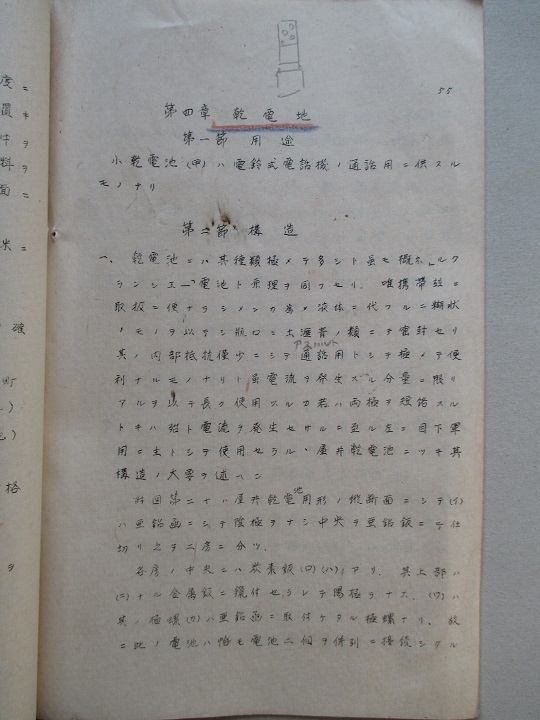 55
第四章 乾電地
第一節 用途
小乾電池(甲)ハ電鈴式電話機ノ通話用ニ供スル
モノナリ
第二節 構造
一、乾電池ニハ其種類極メテ多シト虽モ概ネ「ルク
ランシエー」電池ト原理ヲ同フセリ、唯携帯並ニ
取扱ニ便ナラシメンカ為メ液体ニ代フルニ糊状
ノモノヲ以テシ瓶口ニ土瀝青ノ類ニテ密封セリ
アスハルト
其ノ内部抵抗僅少ニシテ通話用トシテ極メテ便
利ナルモノナリト虽電流ヲ発生スル分量ニ限リ
アルヲ以テ長ク使用スルカ若ハ両極ヲ短絡スル
トキハ殆ト電流ヲ発生セサルニ至ル左ニ目下軍
用ニ主トシテ使用セラルヽ屋井乾電池ニツキ其
構造ノ大要ヲ述ヘン
附図第二十ハ屋井乾電池角形ノ縦断面ニシテ(イ)
ハ亜鉛函ニシテ陰極ヲナシ中央ヲ亜鉛鈑ニテ仕
切リ之ヲ二房ニ分ツ、
各房ノ中央ニハ炭素鈑(ロ)(ハ)アリ、其上部ハ
(ニ)ナル金属鈑ニ纏付セラレテ陽極ヲナス、(ワ)ハ
其ノ極螺(カ)ハ亜鉛函ニ取付ケタル極螺ナリ、故
ニ此ノ電池ハ恰モ電池二個ヲ併列ニ接続シタル
度ニ
置キ
件ヲ
料ヲ
面ニ
米ニ
確
町
格
ヲ